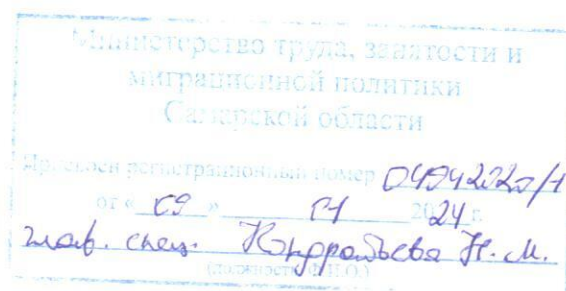 Министерство труда, занятости и
миграционной политики
Самарской области
Присвоен регистрационный номер
от « 09 » 20 24 г.
глав. спец. Кондратьева Н. М.
(должность, Ф.И.О.)